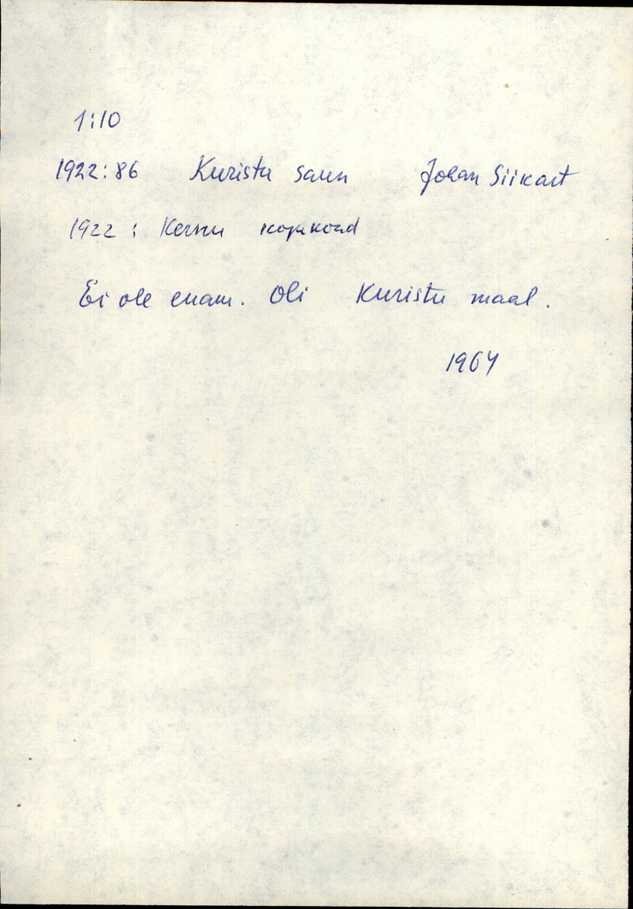 1:10
1922:86 Kuristu saun Johan Siikart
1922: Kernu kogukond
Ei ole enam. Oli Kuristu maal.
1964